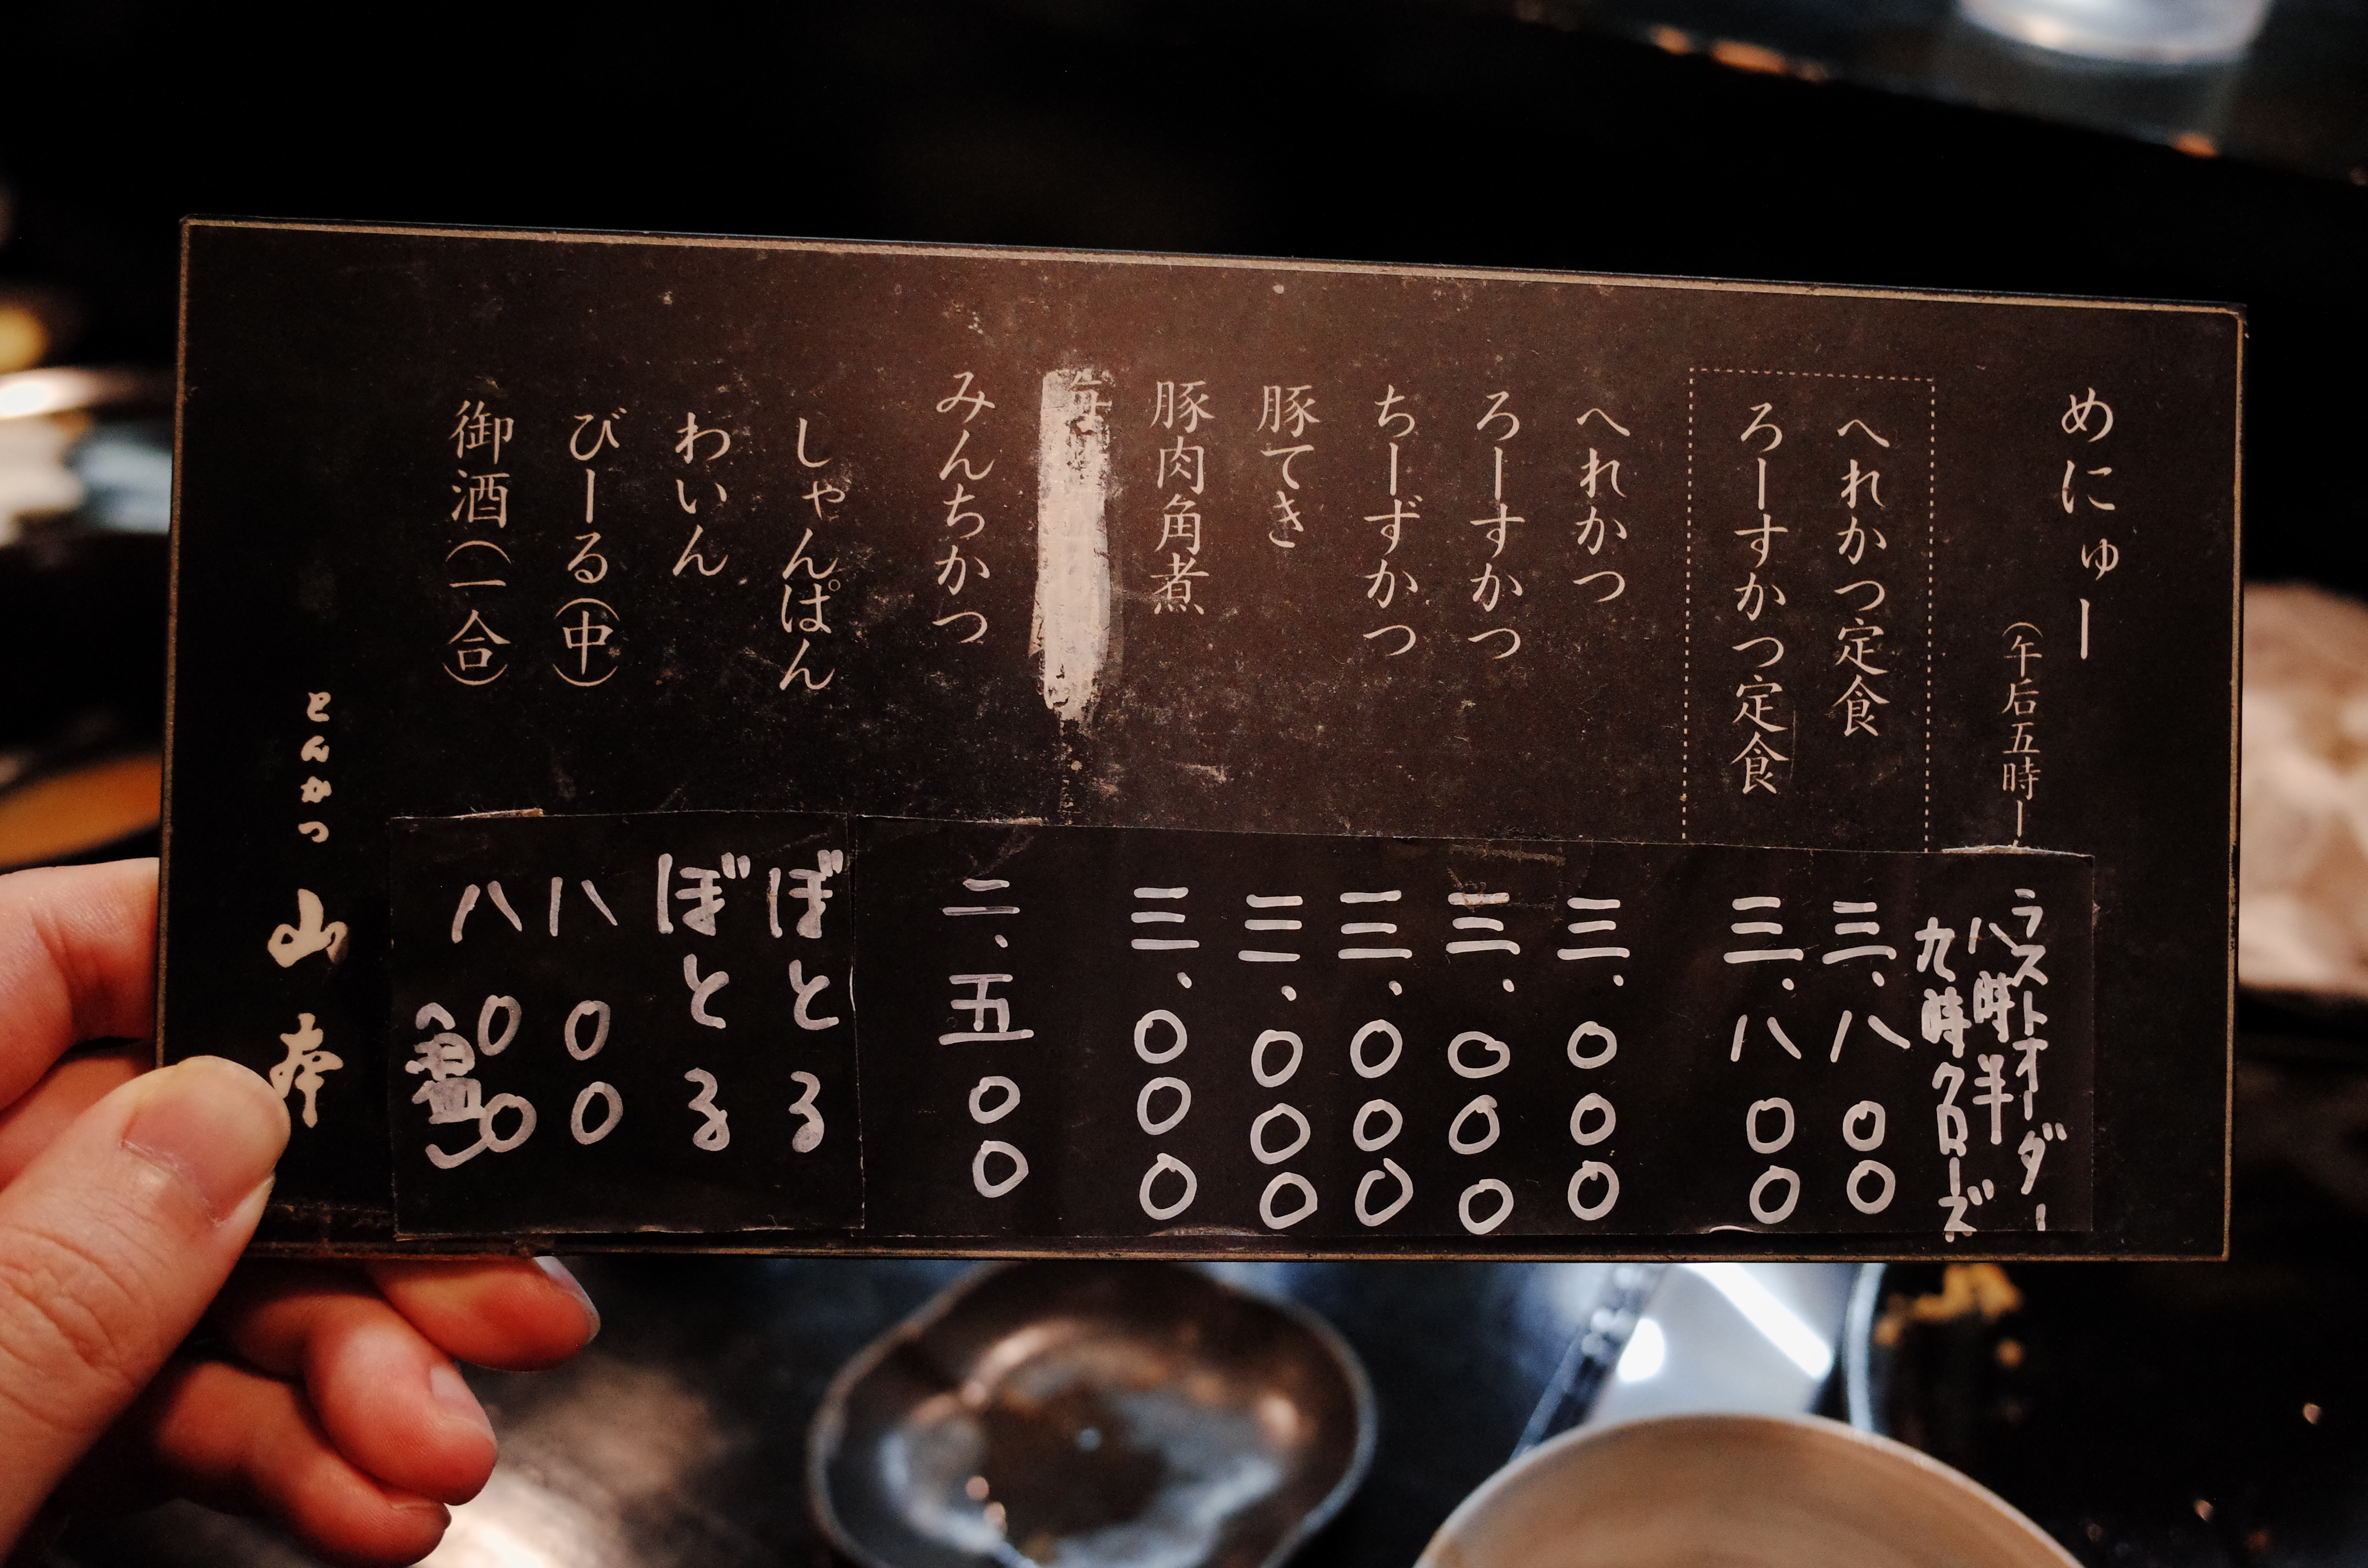 めにゅー
(午后五時ー
ラストオーダー
八時半
九時クローズ
へれかつ定食 三、八〇〇
ろーすかつ定食 三、八〇〇
へれかつ 三、〇〇〇
ろーすかつ 三、〇〇〇
ちーずかつ 三、〇〇〇
豚てき 三、〇〇〇
豚肉角煮 三、〇〇〇
みんちかつ 二、五〇〇
しゃんぱん ぼとる
わいん ぼとる
びーる(中) 八〇〇
御酒(一合) 八〇〇
とんかつ 山本